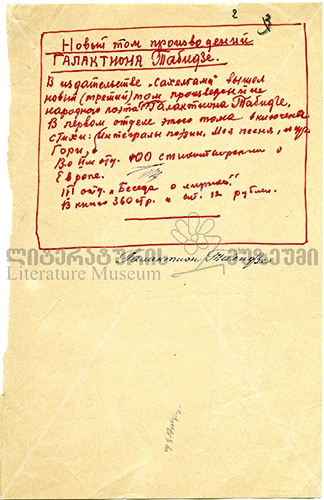 2
Новый том произведений
ГАЛАКТИОНА Табидзе.
В издательстве „Сахелгами" вышел
новый (третий) том произведений
народного поэта Галактиона Табидзе.
В первом отделе этого тома включены
стихи: Интегралы поэзии, Моя песня,
Горы,
Во II отд. 100 стихотворений о
Европе.
III отд. „Беседа о лирике"
В книге 360 стр. и ст. 12 рубл.
ლიტერატურის მუზეუმი
Literature Museum
Галактион Табидзе